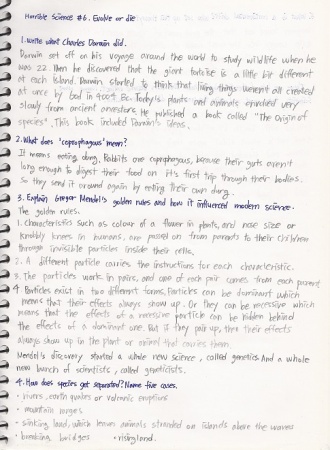 Horrible Science #6. Evolve or die
1. Write what Charles Darwin did.
Darwin set off on his voyage around the world to study wildlife when he
was 22. Then he discovered that the giant tortoise is a little bit different
at each island. Darwin started to think that living things weren't all created
at once by God in 4004 Bc. Today's plants and animals evolved very
slowly from ancient ancestors. He published a book called "The Origin of
species". This book included Darwin's ideas.
2. What does 'coprophagous' mean?
It means eating dung. Rabbits are coprophagous, because their guts aren't
long enough to digest their food on it's first trip through their bodies.
So they send it around again by eating their own dung.
3. Explain Gregor Mendel's golden rules and how it influenced modern science.
The golden rules.
1. Characteristics such as colour of a flower in plants, and nose size or
knobbly knees in humans, are passed on from parents to their children
through invisible particles inside their cells.
2. A different particle carries the instructions for each characteristic.
3. The particles work in pairs, and one of each pair comes from each parent
4 Particles exist in two different forms. Particles can be dominant which
means that their effects always show up. Or they can be recessive which
means that the effects of a recessive particle can be hidden behind
the effects of a dominant one. But if they pair up, then their effects
always show up in the plant or animal that carries them.
Mendel's discovery started a whole new science, called genetics. And a whole
new bunch of scientists, called geneticists.
4. How does species get separated? Name five cases.
· rivers, earth quakes or volcanic eruptions
· mountain ranges
· sinking land, which leaves animals stranded on islands above the waves
· breaking bridges · rising land.